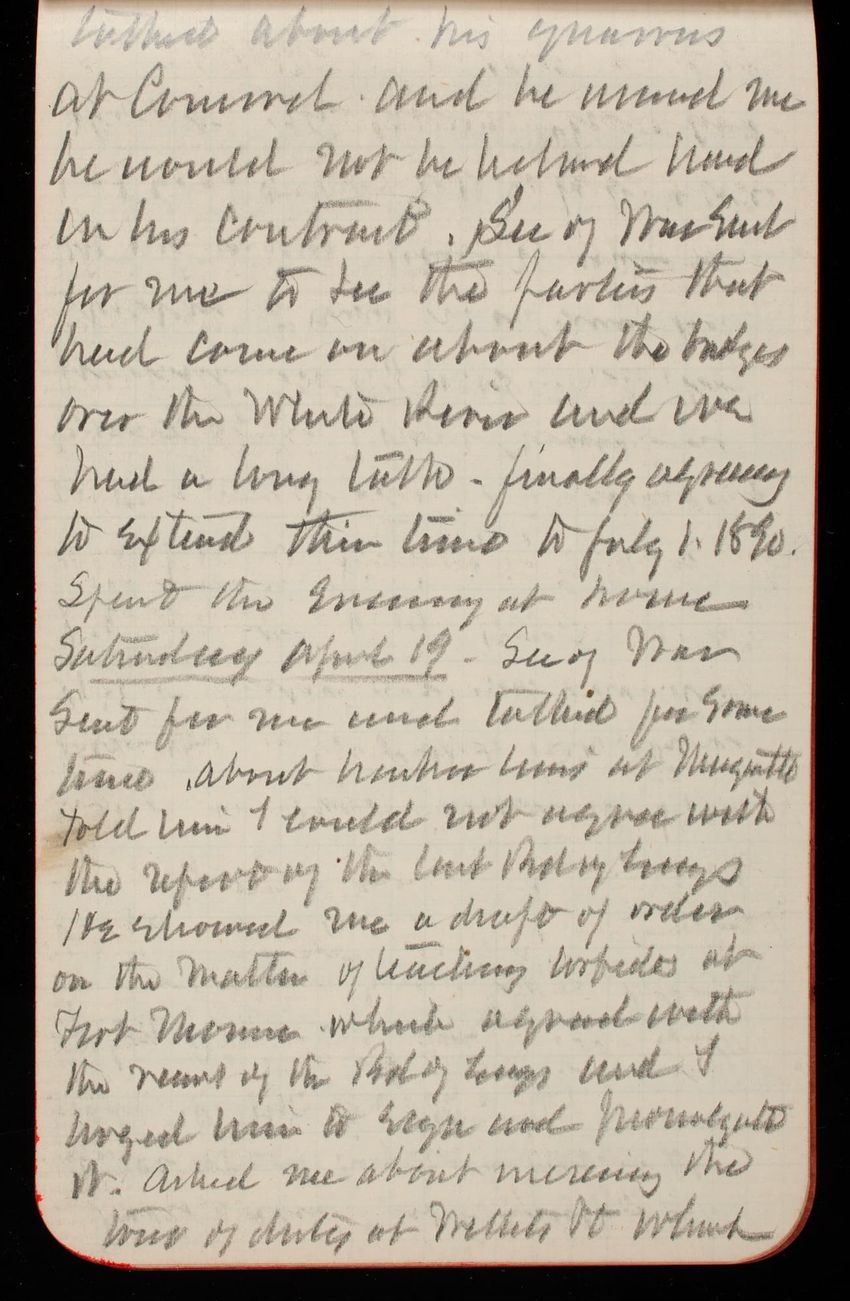 talked about his quarries
at Concord and he assured me
he would not be behind hand
in his contract. Sec of War Sent
for me to see the parties that
had come on about the bridges
over the White River and we
had a long talk - finally agreeing
to extend their time to July 1. 1890.
Spent the Evening at home
Saturday April 19 - Sec of War
Sent for me and talked for Some
time about harbor lines at
told him I could not agree with
the report of the last Bd of Engrs
He showed me a draft of order
on the matter of teaching torpedos at
Fort Monroe which agreed with
the views of the Bd of Engs and I
urged him to sign and promulgate
it. Asked me about increasing the
tour of duty at Willets Pt which